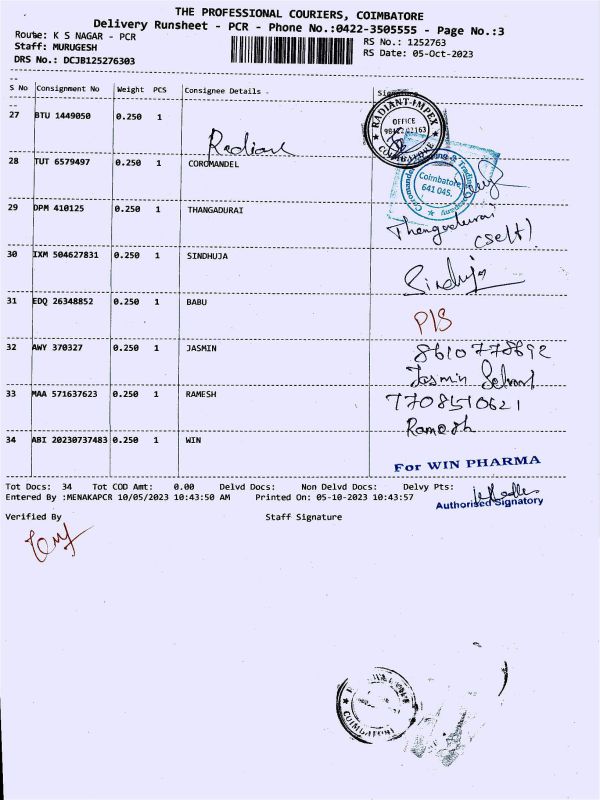 THE PROFESSIONAL COURIERS, COIMBATORE
Delivery Runsheet - PCR - Phone No.:0422-3505555 - Page No.:3
Route: K S NAGAR - PCR
RS No.: 1252763
Staff: MURUGESH
RS Date: 05-Oct-2023
DRS No.: DCJB125276303
S No Consignment No Weight PCS Consignee Details Signature
27 BTU 1449050 0.250 1
RADIANT-IMPEX
OFFICE
COIMBATORE
28 TUT 6579497 0.250 1 COROMANDEL
Coimbatore
641 045.
29 DPM 410125 0.250 1 THANGADURAI
Thangadurai
(self)
30 IXM 504627831 0.250 1 SINDHUJA
Sindhuja
31 EDQ 26348852 0.250 1 BABU
P/S
32 AWY 370327 0.250 1 JASMIN
8610778692
Jasmin
33 MAA 571637623 0.250 1 RAMESH
7708510621
Ramesh
34 ABI 20230737483 0.250 1 WIN
For WIN PHARMA
Tot Docs: 34 Tot COD Amt: 0.00 Delvd Docs: Non Delvd Docs: Delvy Pts:
Entered By :MENAKAPCR 10/05/2023 10:43:50 AM Printed On: 05-10-2023 10:43:57
Authorised Signatory
Verified By Staff Signature
COIMBATORE